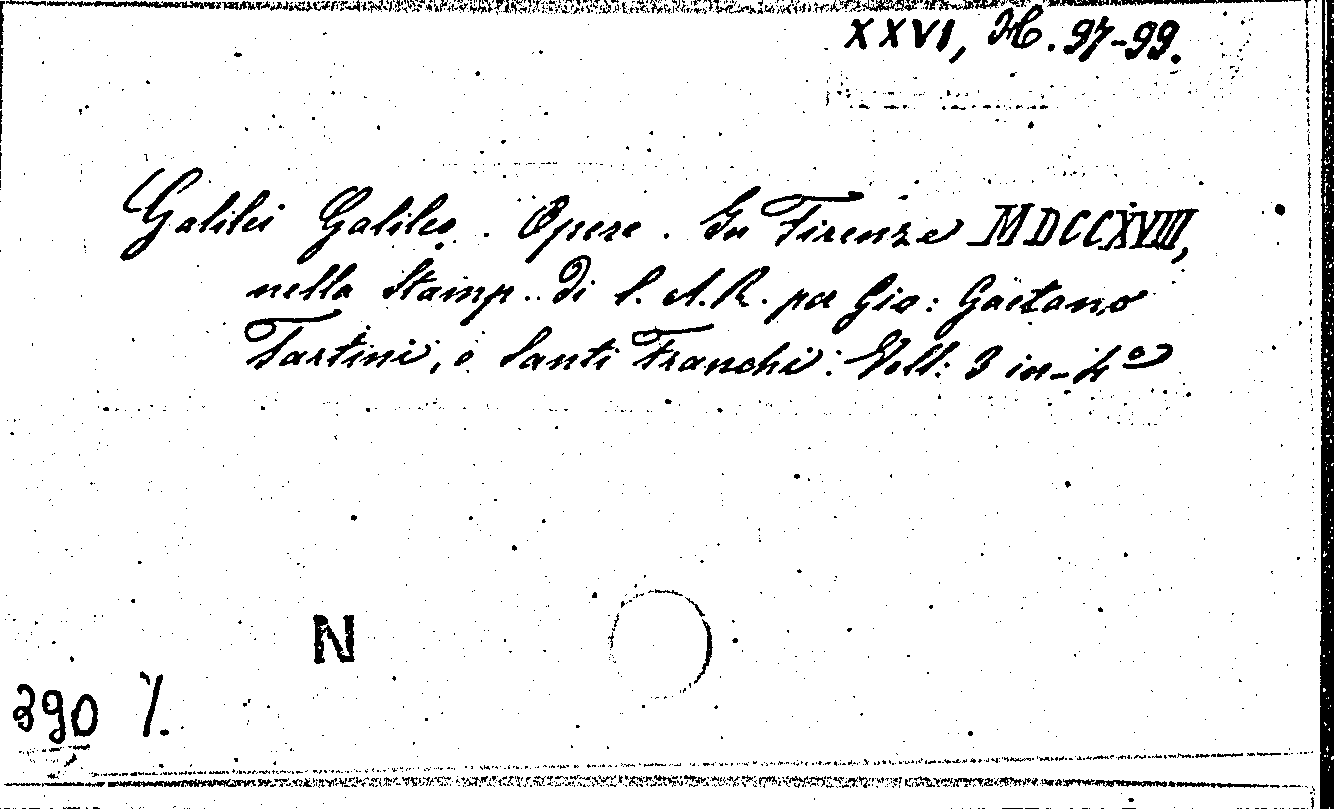 XXVI, H. 97-99.
Galilei Galileo. Opere. In Firenze MDCCXVIII,
nella Stamp. di S. A. R. per Gio: Gaetano
Tartini, e Santi Franchi. Voll: 3 in-4º
N
390 /.